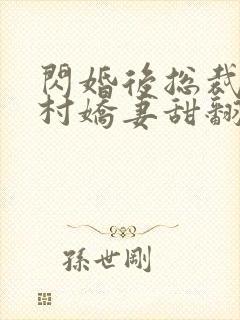 閃婚後總裁
村嬌妻甜翻
孫世剛